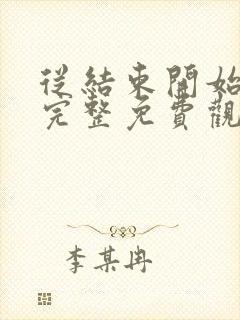 從結束開始
完整免費觀
李某冉